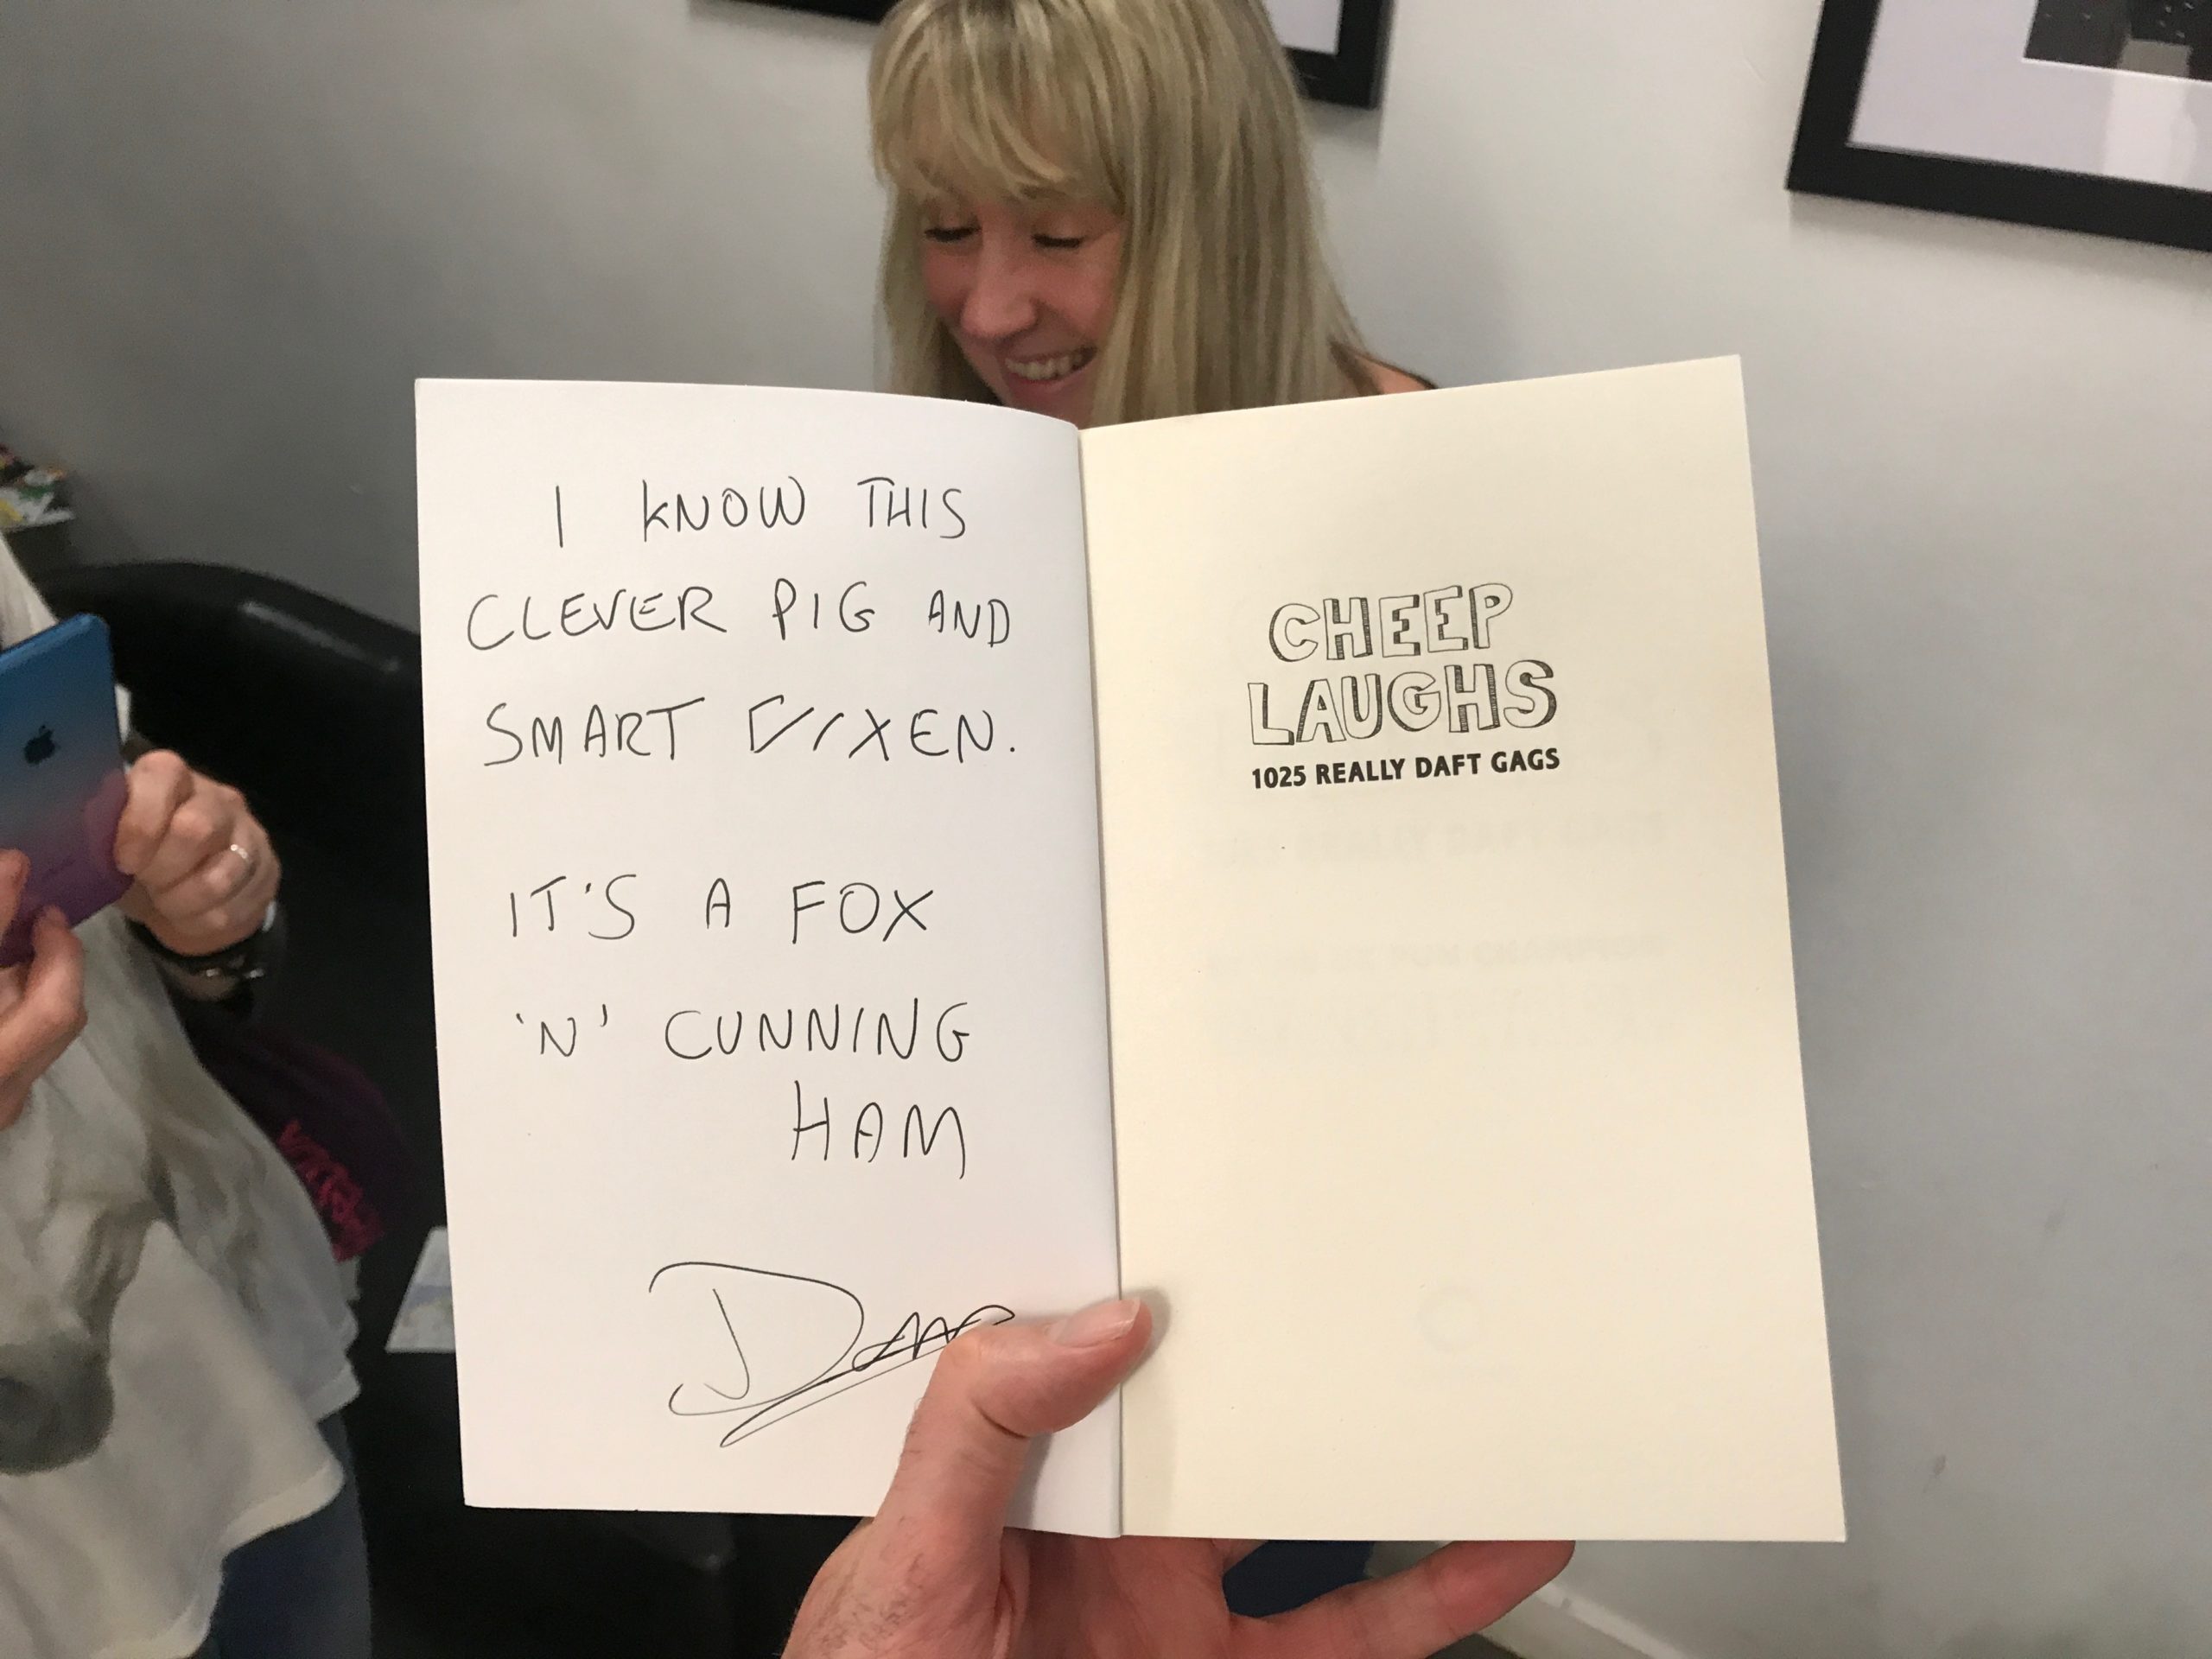 I KNOW THIS
CLEVER PIG AND
SMART VIXEN.
IT'S A FOX
'N' CUNNING
HAM
CHEEP
LAUGHS
1025 REALLY DAFT GAGS